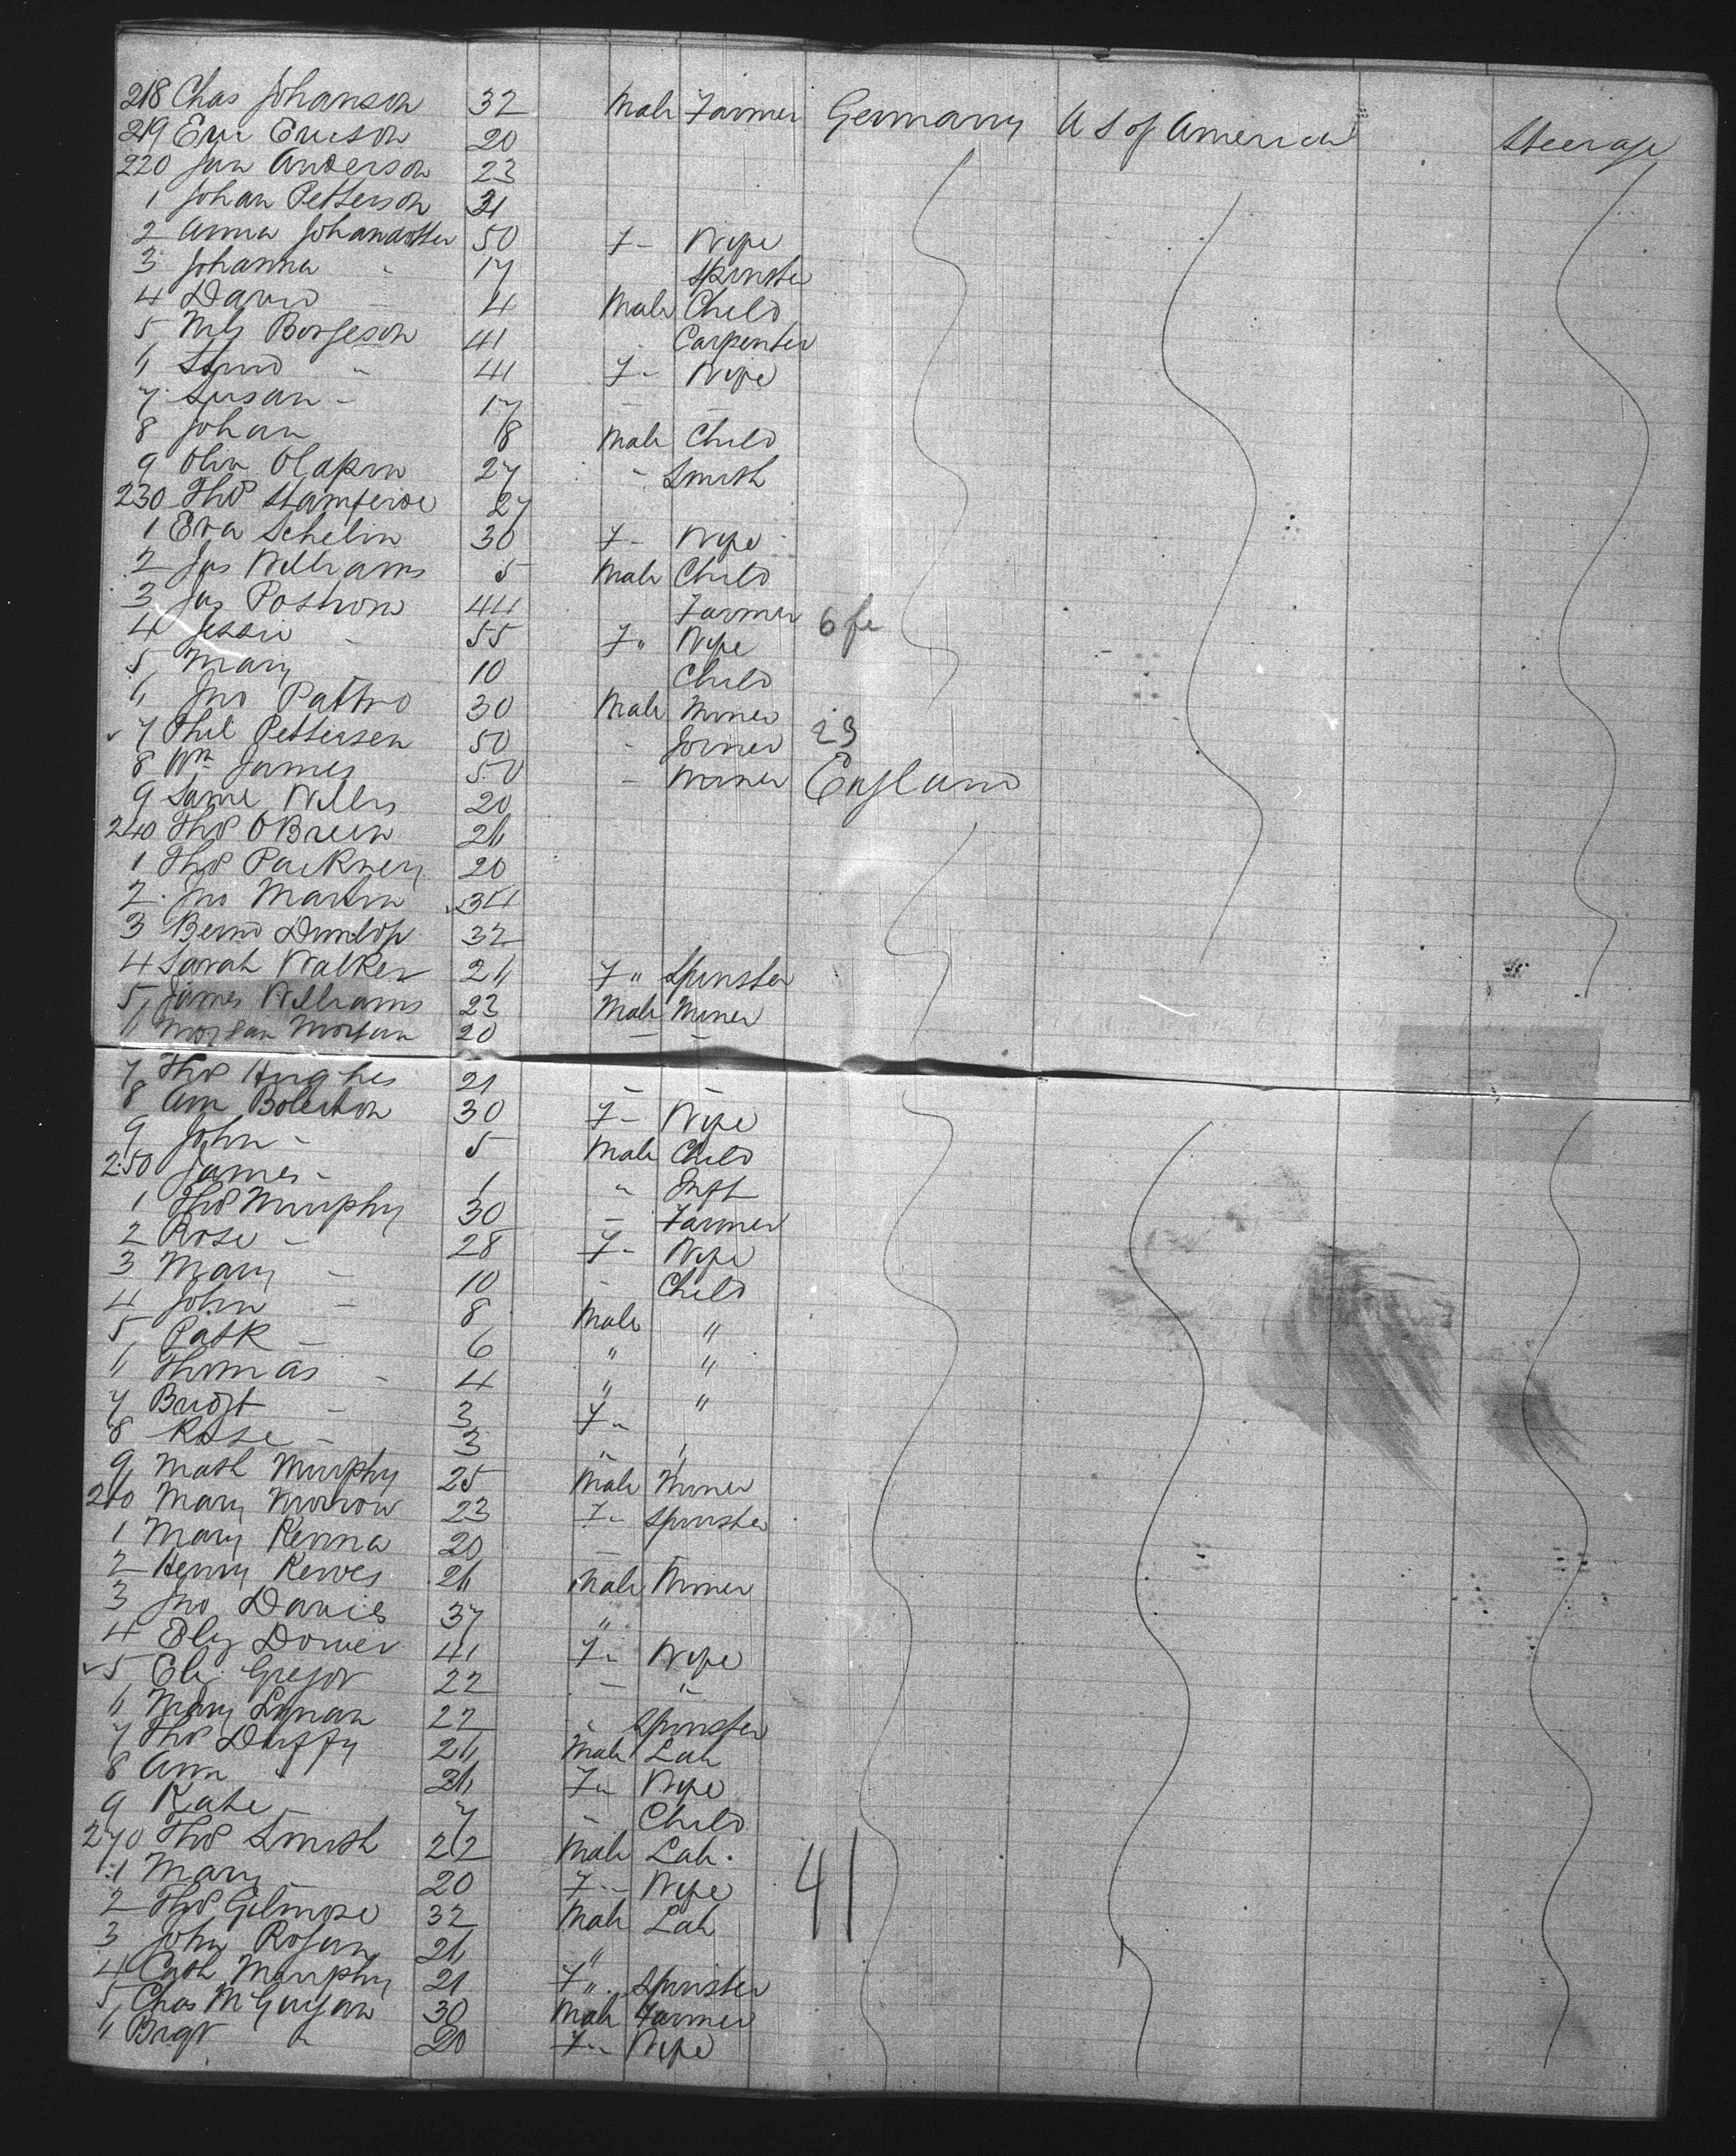 218 Chas Johanson 32 Male Farmer Germany U S of America Steerage
219 Eric Ericson 20
220 Jan Anderson 23
1 Johan Petterson 31
2 Anna Johandotter 50 F " Wife
3 Johanna " 17 Spinster
4 David " 4 Male Child
5 Nils Borgeson 41 " Carpenter
6 " 41 F " Wife
7 Susan " 17 " "
8 Johan 8 Male Child
9 Olin 27 " Smith
230 Thos 27
1 Eva Schelin 30 F " Wife
2 Jas Williams 5 Male Child
3 Jas Postrom 44 Farmer 6 fe
4 Jessie " 55 F " Wife
5 Mary 10 Child
6 Jno 30 Male Miner
7 Phil Pettersen 50 " Joiner 23
8 Wm James 50 " Miner England
9 Saml Willis 20
240 Thos O'Brien 26
1 Thos 20
2 Jno Martin 34
3 Bernd Dunlop 32
4 Sarah Walker 26 F " Spinster
5 James Williams 23 Male Miner
6 Morgan Morgan 20 " "
7 Thos Hughes 21 " "
8 Ann Bolerton 30 F " Wife
9 John " 5 Male Child
250 James " 1 " Inft
1 Thos Murphy 30 " Farmer
2 Rose " 28 F " Wife
3 Mary " 10 " Child
4 John " 8 Male "
5 Patk " 6 " "
6 Thomas " 4 " "
7 Bridgt " 3 F "
8 Rose " 3 " "
9 Math Murphy 25 Male Miner
260 Mary Morrow 23 F " Spinster
1 Mary Kenna 20 " "
2 Henry Reeves 26 Male Miner
3 Jno Davies 37 "
4 Eliz Dower 41 F " Wife
5 Eliz Gregor 22 " "
6 Mary Lynan 22 " Spinster
7 Thos Duffy 26 Male Lab
8 Ann " 26 F " Wife
9 Kate " 7 " Child
270 Thos Smith 22 Male Lab.
1 Mary " 20 F " Wife 41
2 Thos Gilmore 32 Male Lab
3 John Rogan 26 "
4 Cath Murphy 21 F " Spinster
5 Chas McGuigan 30 Male Farmer
6 Brgt " 20 F " Wife